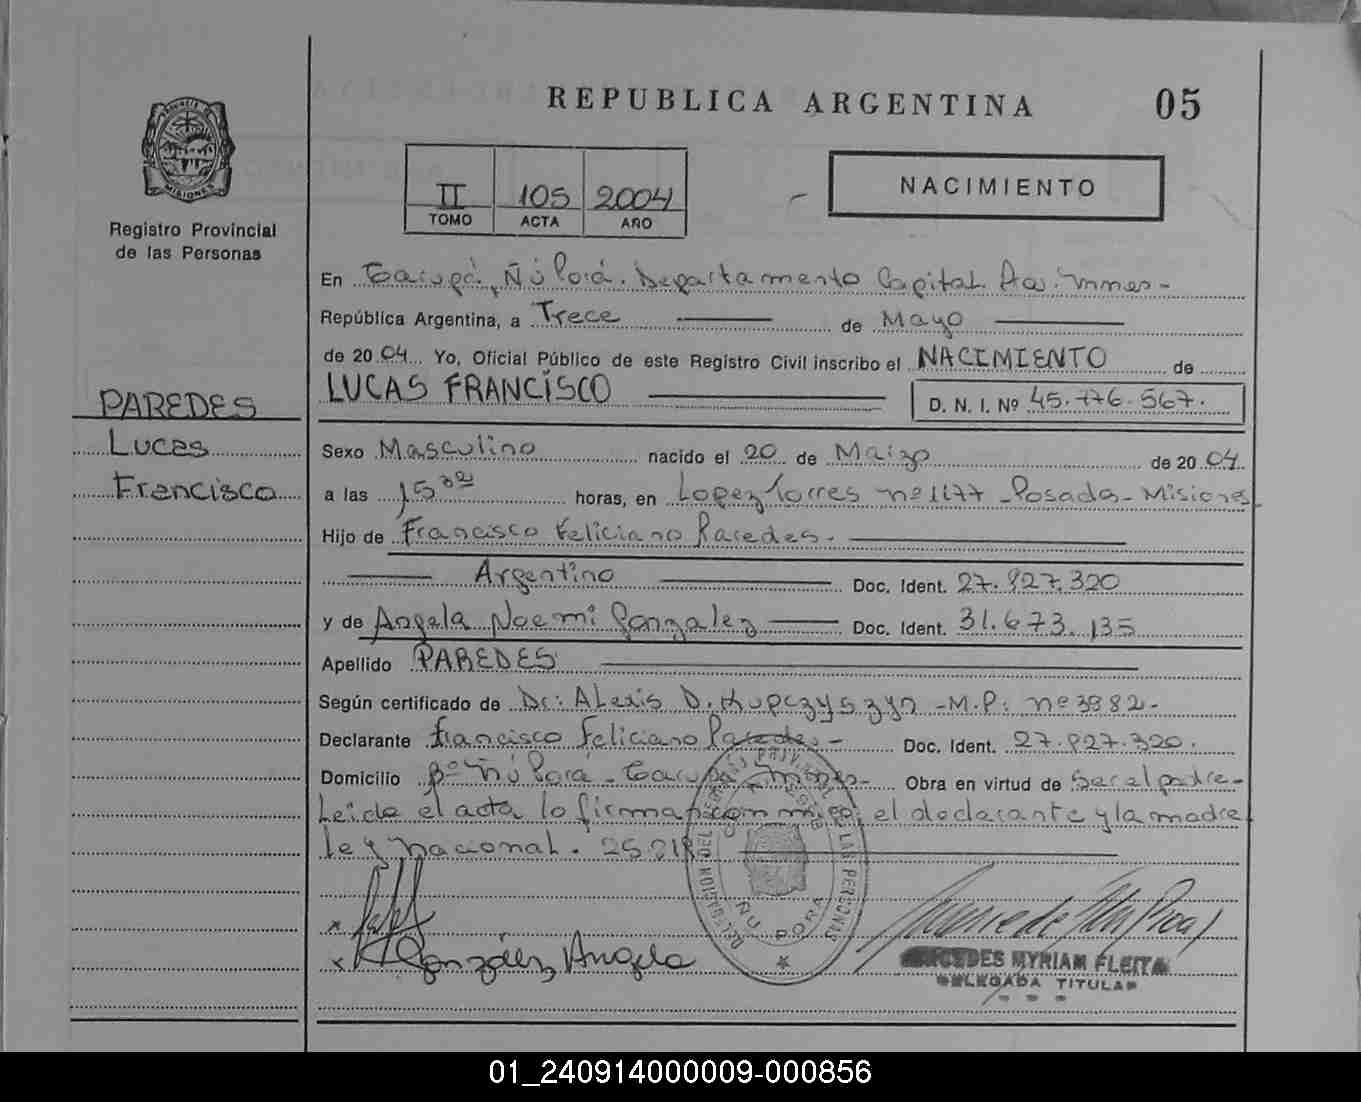 REPUBLICA ARGENTINA
05
PROVINCIA DE
MISIONES
Registro Provincial
de las Personas
II 105 2004
TOMO ACTA AÑO
NACIMIENTO
En Garupá, Ñú Porá. Departamento Capital. Pcia. Mnes-
República Argentina, a Trece de Mayo
de 2004 Yo, Oficial Público de este Registro Civil inscribo el NACIMIENTO de
LUCAS FRANCISCO
D. N. I. Nº 45.776.567.
PAREDES
Lucas
Francisco
Sexo Masculino nacido el 20 de Marzo de 2004.
a las 15 horas, en Lopez Torres nº 1177 - Posadas - Misiones
Hijo de Francisco Feliciano Paredes.
Argentino Doc. Ident. 27.827.320
y de Angela Noemi Gonzalez Doc. Ident. 31.673.135
Apellido PAREDES
Según certificado de Dr: Alexis D. Kupczyszyn - M.P: nº 3882-
Declarante Francisco Feliciano Paredes- Doc. Ident. 27.827.320.
Domicilio Bº Ñú Porá - Garupá - Mnes- Obra en virtud de Ser el padre-
Leida el acta lo firman conmigo, el declarante y la madre
ley nacional. 25.818
DELEGACION DEL REGISTRO PROVINCIAL DE LAS PERSONAS
ÑU PORA
González, Angela
MYRIAM FLEITA
DELEGADA TITULAR
01_240914000009-000856